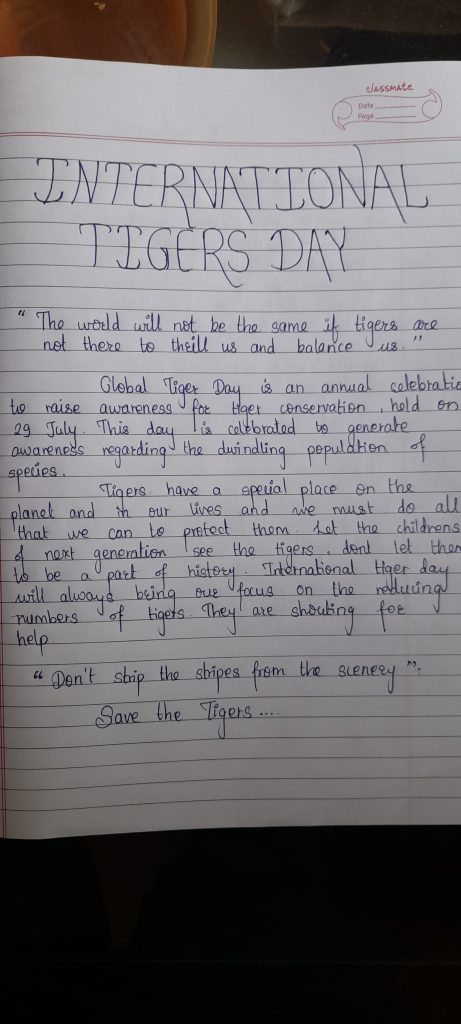 classmate
Date
Page
INTERNATIONAL
TIGERS DAY
" The world will not be the same if tigers are
not there to thrill us and balance us. "
Global Tiger Day is an annual celebratio
to raise awareness for tiger conservation, held on
29 July. This day is celebrated to generate
awareness regarding the dwindling population of
species.
Tigers have a special place on the
planet and in our lives and we must do all
that we can to protect them. Let the childrens
of next generation see the tigers, dont let them
to be a part of history. International tiger day
will always bring our focus on the reducing
numbers of tigers. They are shouting for
help.
" Don't strip the stripes from the scenery ".
Save the Tigers.....